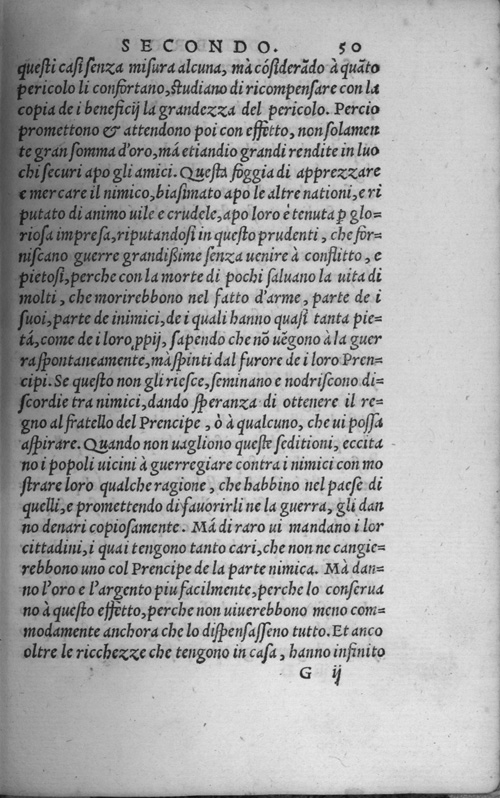 SECONDO. 50
questi casi senza misura alcuna, mà cósiderãdo à quãto
pericolo li confortano, studiano di ricompensare con la
copia de i beneficij la grandezza del pericolo. Percio
promettono & attendono poi con effetto, non solamen
te gran somma d'oro, má etiandio grandi rendite in luo
chi securi apo gli amici. Questa foggia di apprezzare
e mercare il nimico, biasimato apo le altre nationi, e ri
putato di animo uile e crudele, apo loro é tenuta ꝑ glo=
riosa impresa, riputandosi in questo prudenti, che for=
niscano guerre grandißime senza uenire à conflitto, e
pietosi, perche con la morte di pochi saluano la uita di
molti, che morirebbono nel fatto d'arme, parte de i
suoi, parte de inimici, de i quali hanno quasi tanta pie=
tá, come de i loro ꝓpij, sapendo che nõ uẽgono à la guer
ra spontaneamente, mà spinti dal furore de i loro Pren=
cipi. Se questo non gli riesce, seminano e nodriscono di=
scordie tra nimici, dando speranza di ottenere il re=
gno al fratello del Prencipe, ò à qualcuno, che ui possa
aspirare. Quando non uagliono queste seditioni, eccita
no i popoli uicini à guerregiare contra i nimici con mo
strare loro qualche ragione, che habbino nel paese di
quelli, e promettendo di fauorirli ne la guerra, gli dan
no denari copiosamente. Má di raro ui mandano i lor
cittadini, i quai tengono tanto cari, che non ne cangie=
rebbono uno col Prencipe de la parte nimica. Mà dan=
no l'oro e l'argento piu facilmente, perche lo conserua
no à questo effetto, perche non uiuerebbono meno com=
modamente anchora che lo dispensasseno tutto. Et anco
oltre le ricchezze che tengono in casa, hanno infinito
G ij